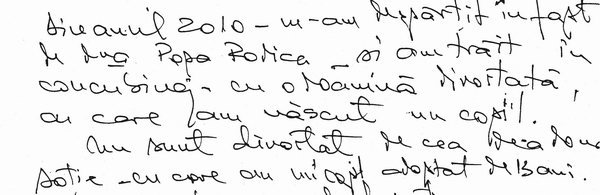 Din anul 2010 - m-am despărțit în fapt
de d-na Popa Rodica - și am trăit în
concubinaj - cu o doamnă divorțată,
cu care am născut un copil.
Nu sunt divorțat de cea de-a doua
soție - cu care am un copil adoptat de 13 ani.